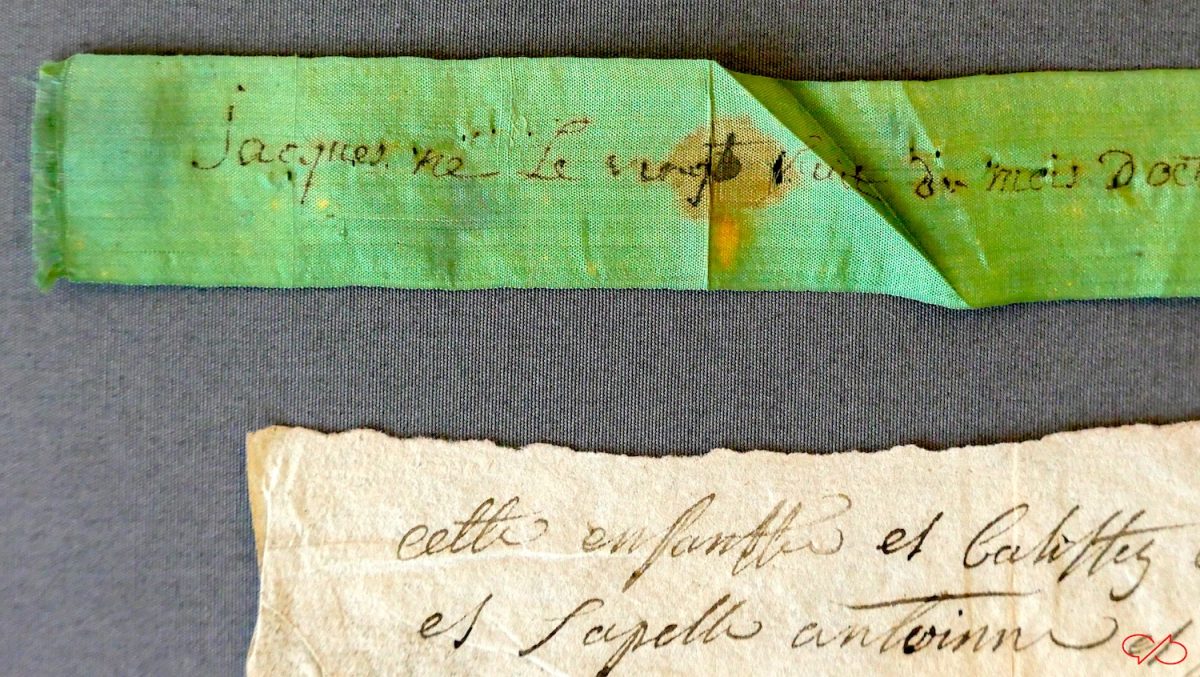 Jacques né Le vingt du mois Doct
cette enfantte et batisttez
et Sapelle antoinne et